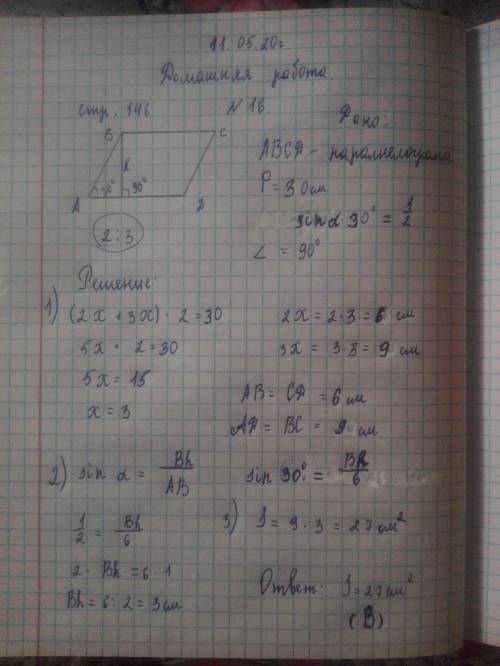 11. 05. 20г.
Домашняя работа.
стр. 146 № 16.
Дано:
B C
h
30° 90°
A D
2:3
ABCD - параллелограмм
P = 30 см
sin α 30° = 1/2
∠ = 90°
Решение:
1) (2x + 3x) · 2 = 30
5x · 2 = 30
5x = 15
x = 3
2x = 2 · 3 = 6 см
3x = 3 · 3 = 9 см
AB = CD = 6 см
AD = BC = 9 см
2) sin α = Bh/AB
sin 30° = Bh/6
1/2 = Bh/6
2 · Bh = 6 · 1
Bh = 6 : 2 = 3 см
3) S = 9 · 3 = 27 см²
Ответ: S = 27 см²
(B)